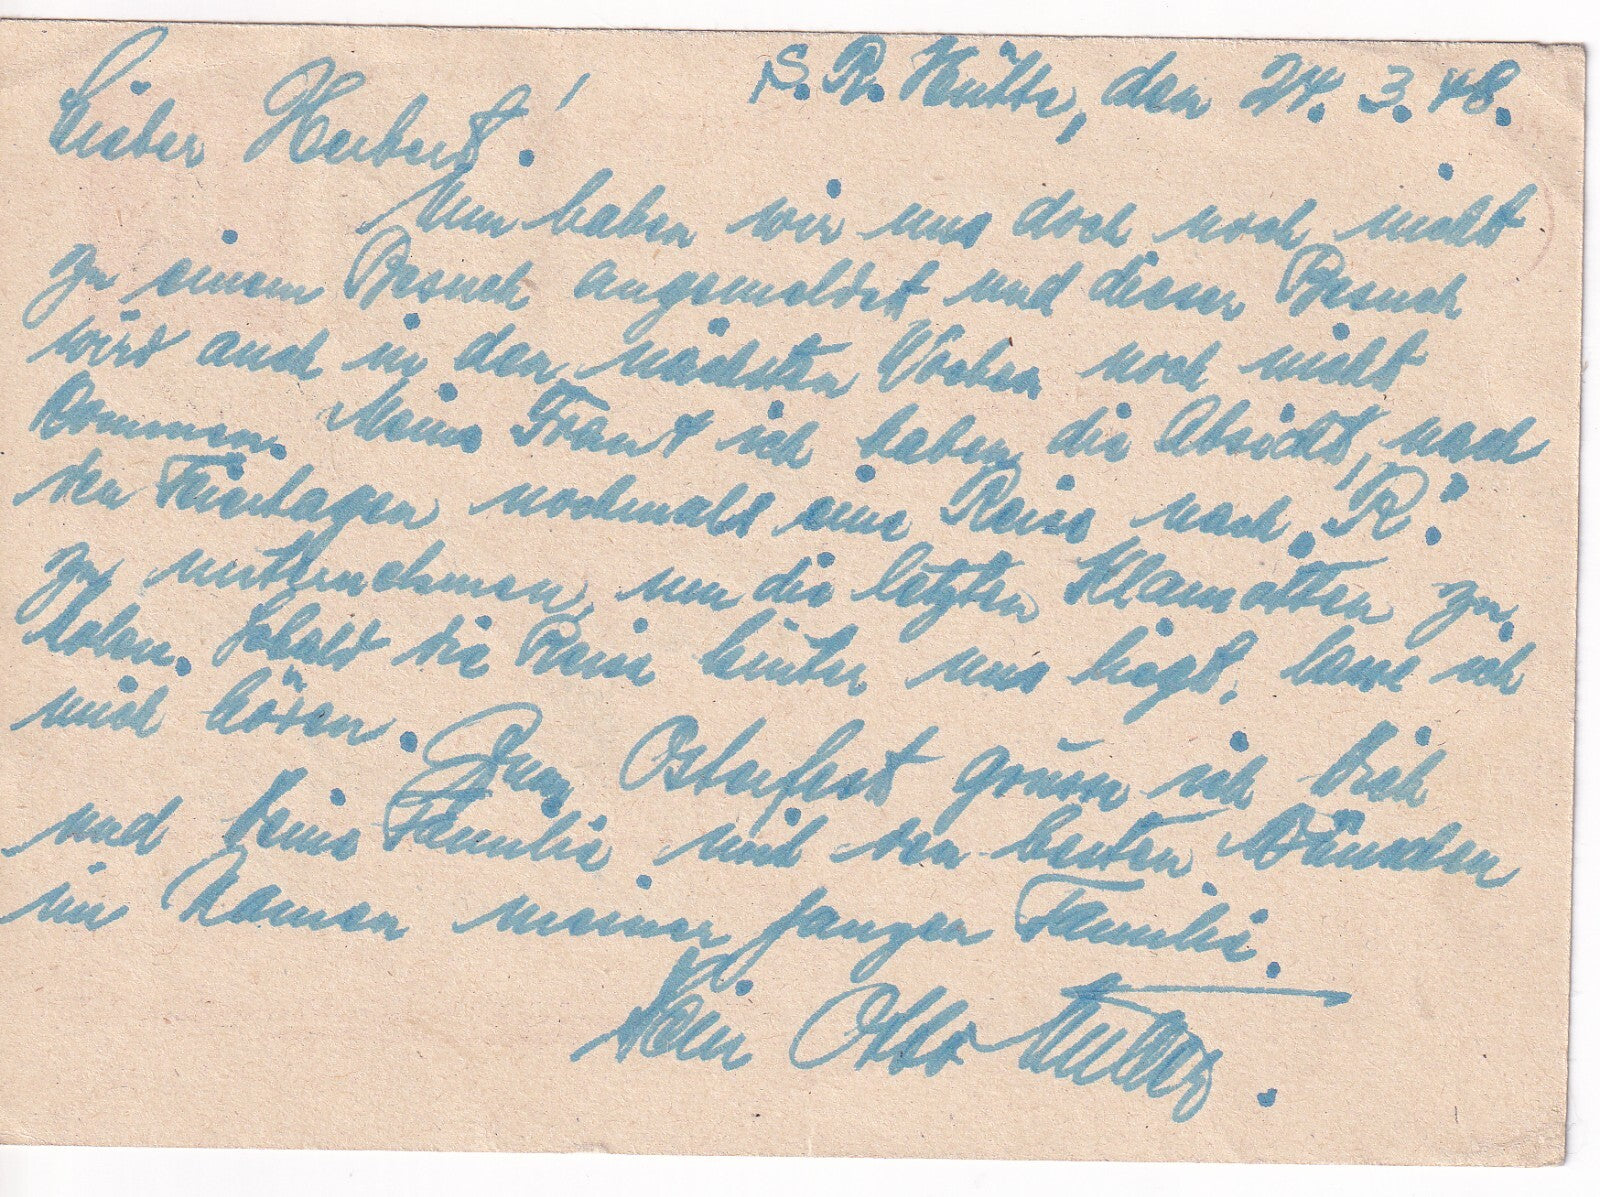 S. R. Hütte, den 24. 3. 48.
Lieber Herbert!
Nun haben wir uns doch noch nicht
zu einem Besuch angemeldet und dieser Besuch
wird auch in den nächsten Wochen noch nicht
kommen. Meine Frau u. ich haben die Absicht, nach
den Feiertagen nochmals eine Reise nach "R".
zu unternehmen, um die letzten Klamotten zu
holen. Sobald die Reise hinter uns liegt, lasse ich
mich hören. Zum Osterfest grüsse ich Dich
und Deine Familie mit den besten Wünschen
im Namen meiner jungen Familie.
Dein Otto